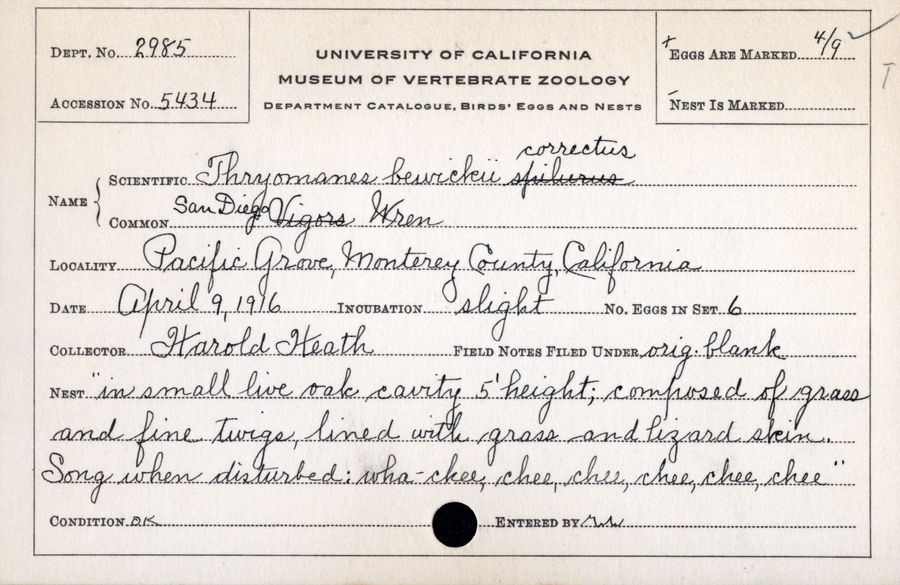 Dept. No. 2985
Accession No. 5434
UNIVERSITY OF CALIFORNIA
MUSEUM OF VERTEBRATE ZOOLOGY
Department Catalogue, Birds' Eggs and Nests
+ Eggs Are Marked 4/9 ✓
T
- Nest Is Marked
correctus
Name { Scientific Thryomanes bewickii spilurus
Common San Diego Vigors Wren
Locality Pacific Grove, Monterey County, California
Date April 9, 1916 Incubation slight No. Eggs in Set 6
Collector Harold Heath Field Notes Filed Under orig. blank
Nest "in small live oak cavity 5' height; composed of grass
and fine twigs, lined with grass and lizard skin.
Song when disturbed: wha-ckee, chee, chee, chee, chee, chee"
Condition OK Entered by